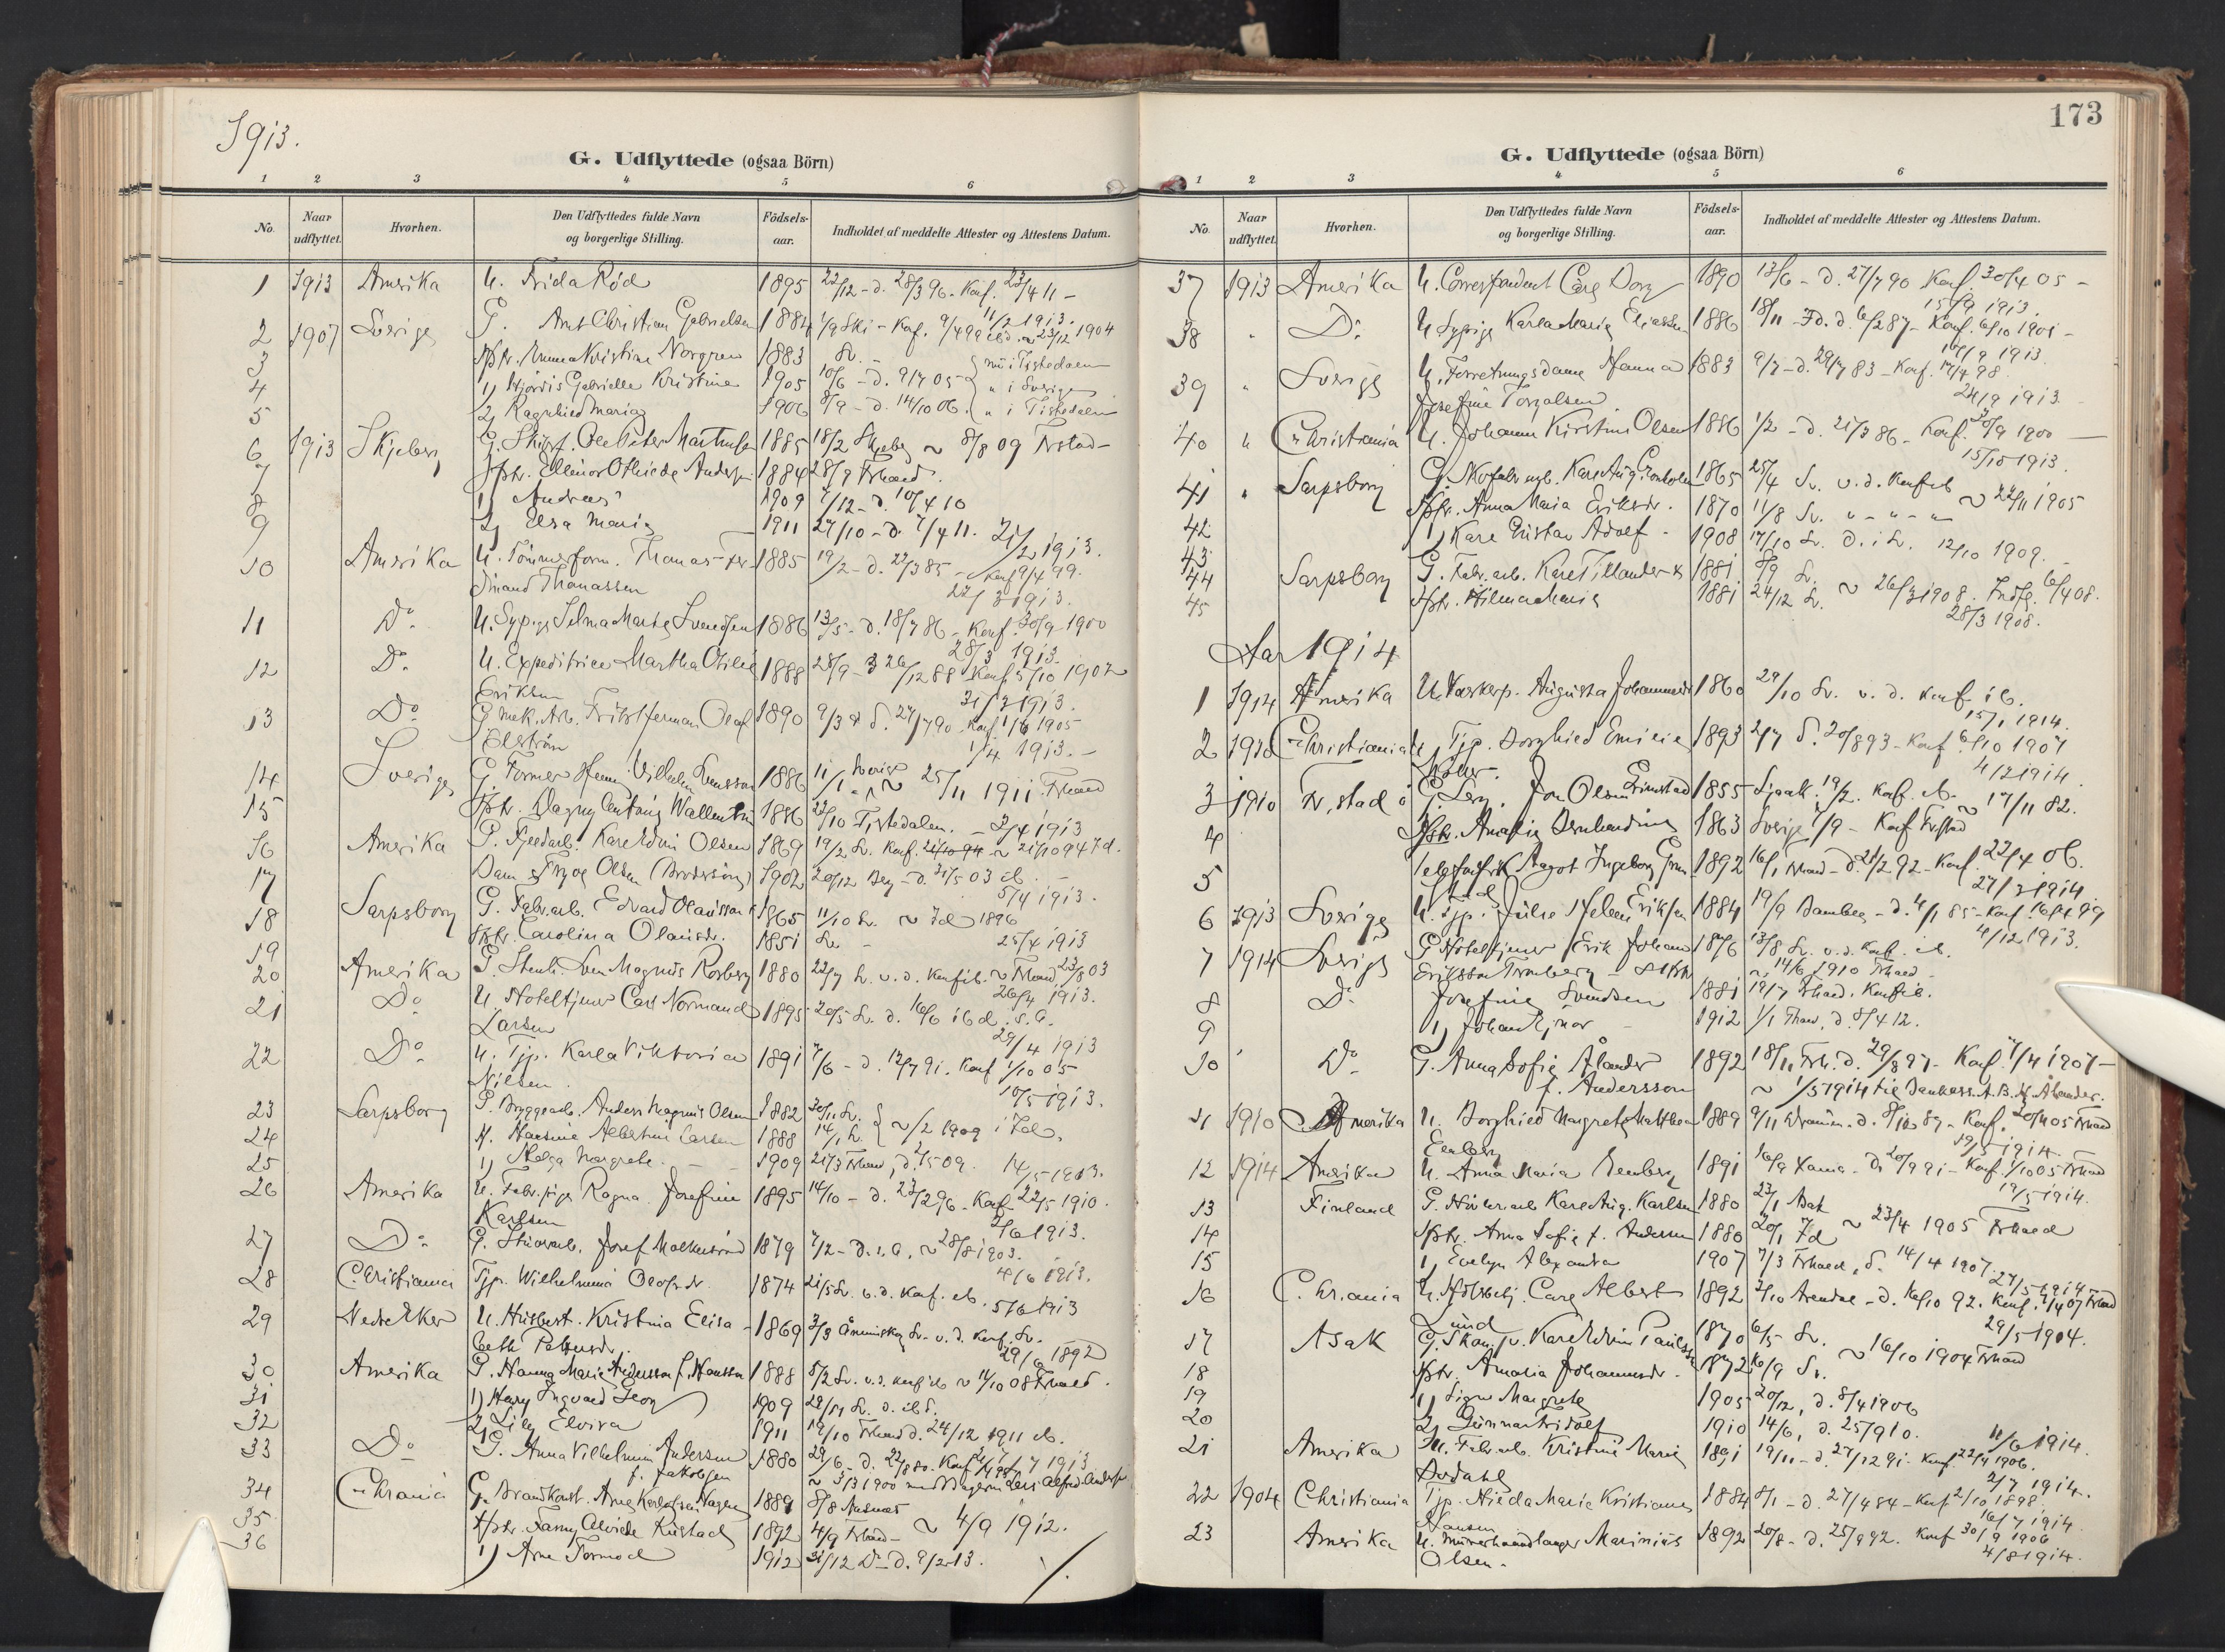 1913.
G. Udflyttede (ogsaa Börn)
1 2 3 4 5 6
No. Naar udflyttet. Hvorhen. Den Udflyttedes fulde Navn og borgerlige Stilling. Födsels-aar. Indholdet af meddelte Attester og Attestens Datum.
1 1913 Amerika U. Frida Röd 1895 22/12 - d. 28/3 96 - Konf. 23/4 11 -
11/2 1913.
2 1907 Sverige G. Arnt Christian Gabrielsen 1884 1/9 Ski - Konf. 9/4 99
3 Hstr. Emma Kristine Norgren 1883 Sv. -
4 1) Hjördis Gabrielle Kristine 1905 10/6 - d. 9/7 05 " i Sverige
5 2) Ragnhild Maria 1906 8/9 - d. 14/10 06. " i Tistedalen
6 1913 Skjeberg G. Ole Peter Martinsen 1885 18/2 Skjeberg ~ 8/8 09 Frstad -
7 Hstr. Ellinor Othilde 1884 28/9 Frhald.
8 1) Andreas 1909 7/12 - d. 10/4 10
9 2) Elsa Maria 1911 27/10 - d. 7/4 11.
21/2 1913.
10 Amerika U. Tömmerform. Thomas Fer- 1885 19/2 - d. 22/3 85 - Konf. 9/4 99.
dinand Thomassen 22/3 1913.
11 Do U. Sypige Selma Marta Svendsen 1886 13/5 - d. 18/7 86 - Konf. 30/9 1900
28/3 1913.
12 Do U. Expeditrice Martha Otilie 1888 28/9 - d. 26/12 88 Konf. 5/10 1902
Eriksen 31/3 1913.
13 Do G. Mek. Arb. Fritz Herman Olaf 1890 9/3 d. 27/7 90 Konf. 1/10 1905
Elström 1/4 1913. -
14 Sverige G. Former Henry Vilhelm 1886 11/1 Sverige ~ 25/11 1911 Frhald
15 Hstr. Dagny Antonie Wallentin 1886 22/10 Tistedalen. - 3/4 1913
16 Amerika G. Karl Edvin Olsen 1869 19/2 Sv. Konf.
17 Olsen (Brodersön) 1902 20/12 Berg - d. 31/5 03 ib. -
5/4 1913.
18 Sarpsborg G. Fabr.arb. Edvard Olausson 1865 11/10 Sv. ~ Idd 1896
19 Hstr. Carolina Olausdr. 1851 Sv. - 25/4 1913
20 Amerika G. Stenh. Sven Magnus Rosberg 1880 22/7 Sv. v. d. Konf. ib. ~ Frhald 23/8 03
26/4 1913.
21 Do U. Hoteltjener Carl Normand 1895 20/5 Sv. d. 16/6 ib. d. s. A.
Larsen 29/4 1913
22 Do U. Tjp. Karla Viktoria 1891 7/6 - d. 12/7 91. Konf. 1/10 05
Nilsen. 10/5 1913.
23 Sarpsborg G. Bryggearb. Anders Magnus Olsen 1882 30/11 Sv.
24 H. Hansine Albertine Larsen 1888 14/1 ~ /2 1909 i Idd.
25 1) Helga Margrete. 1909 21/3 Frhald, d. 2/5 09. 14/5 1913.
26 Amerika U. Fabr.pige Ragna Josefine 1895 14/10 - d. 23/2 96 - Konf. 22/5 1910.
Karlsen 2/6 1913.
27 Do G. Skoarb. Josef 1879 7/2 - D. s. A., ~ 28/8 1903.
4/6 1913.
28 Christiania Tjp. Wilhelmina Olofsdr. 1874 21/5 Sv. v. d. Konf. ib. 5/6 1913
29 Nedre Eker U. Husbest. Kristina Elisa- 1869 3/3 Sv. v. d. Konf. Sv.
beth Pettersdr. 29/6 1892
30 Amerika G. Hanna Marie Andersson f. Hansson 1888 5/2 Sv. v. d. Konf. ib ~ 11/10 08 Frhald.
31 1) Harry Ingvard Georg 1909 28/11 Sv. d. ib.
32 2) Lilly Elvira 1911 19/10 Frhald d. 24/12 1911 ib.
33 Do G. Anna Vilhelmina Andersson 1880 29/6 - d. 22/8 80.
f. Jakobsen ~ 3/3 1900
34 C. hrania G. Brandkonst. Arne Hagen 1889 8/8
35 Hstr. Fanny Alvilde Rustad 1892 4/9 Frhald - ~ 4/9 1912.
36 1) Arne Tormod 1912 31/12 Do - d. 9/2 13.
173
G. Udflyttede (ogsaa Börn)
1 2 3 4 5 6
No. Naar udflyttet. Hvorhen. Den Udflyttedes fulde Navn og borgerlige Stilling. Födsels-aar. Indholdet af meddelte Attester og Attestens Datum.
37 1913 Amerika U. Correspondent Carl Dorg 1890 13/6 - d. 27/7 90 Konf. 30/4 05 -
15/9 1913.
38 " Do U. Sypige Karla Marie Eliassen 1886 18/11 - Id. d. 6/2 87 - Konf. 6/10 1901 -
17/9 1913.
39 " Sverige U. Forretningsdame Hanna 1883 9/7 - d. 29/7 83 - Konf. 17/4 98.
Josefine Torgalsen 24/9 1913.
40 " Christiania U. Johanne Kirstine Olsen 1886 1/2 - d. 21/3 86 - Konf. 30/9 1900
15/10 1913.
41 " Sarpsborg G. Skofabr.arb. Karl Aug. 1865 25/4 Sv. v. d. Konf. ib
42 Hstr. Anna Maria Eriksdr. 1870 11/8 Sv. " - " - " ~ 22/11 1905
43 1) Karl Gustav Adolf - 1908 17/10 Sv. d. i Sv. 12/10 1909.
44 Sarpsborg G. Fabr.arb. Karl Tillander 1881 8/9 Sv.
45 Hstr. Hilma Maria 1881 24/12 Sv. ~ 26/3 1908. Indfl. 6/4 08.
28/3 1908.
Aar 1914
1 1914 Amerika U. Vaskerp. Augusta Johannesdr. 1860 29/10 Sv. v. d. Konf. ib.
15/1 1914.
2 1910 Christiania U. Tjp. Borghild Emilie 1893 2/7 d. 20/8 93 - Konf. 6/10 1907
4/2 1914.
3 1910 Fr.stad G. Jon Olsen Grimstad 1855 19/2. Konf. ib. ~ 17/11 82.
4 Hstr. Amalie Bernhardine 1863 Sverige 7/9 - Konf. Frstad
5 Telefonfrk. Magot Ingeborg Grim- 1892 16/1 Frhald - d. 21/2 92 - Konf. 22/4 06.
stad 27/2 1914
6 1913 Sverige U. Tjp. Julie Helene Eriksen 1884 19/9 Bamble - d. 4/1 85 - Konf. 16/4 99
4/12 1913.
7 1914 Sverige G. Hoteltjener Erik Johan 1876 13/8 Sv. v. d. Konf. ib.
Eriksson Tornberg ~ 14/6 1910 Frhald -
8 Do Josefine Svendsen 1881 19/7 Frhald. Konf. ib.
9 1) Johan Ejnar 1912 1/1 Frhald, d. 8/4 12.
10 Do G. Anna Sofie Ålander 1892 18/11 Frh. d. 29/8 97 - Konf. 7/4 1907 -
f. Andersson ~ 1/5 1914 til
11 1910 Amerika U. Borghild Margrete Matthea 1889 9/11 Drammen - d. 8/12 89 - Konf. 20/4 05 Frhald
Eenberg 19/5 1914
12 1914 Amerika U. Anna Maria Eenberg 1891 16/9 Xania - d. 20/9 91 - Konf. 1/10 05 Frhald
19/5 1914.
13 Finland G. Karl Aug. Karlsen 1880 23/1 Asak
14 Hstr. Anna Sofie f. Andersen 1880 20/1 Id ~ 23/4 1905 Frhald
15 1) Evelyn Alexandra 1907 7/3 Frhald, d. 14/4 1907.
27/5 1914
16 C. hr.ania U. Carl Albert 1892 2/10 Arendal - d. 16/10 92. Konf. 7/4 07 Frhald
Lund 29/5 1904.
17 Asak G. Karl Edvin Paulsson 1870 6/5 Sv.
18 Hstr. Amalia Johannesdr. 1872 16/9 Sv. ~ 16/10 1904 Frhald
19 1) Signe Margrete 1905 20/12, d. 8/4 1906
20 2) Gunnar Fridolf 1910 14/6, d. 25/9 10. 11/6 1914.
21 Amerika U. Fabr.arb. Kristine Marie 1891 19/11 - d. 27/12 91 - Konf. 22/4 1906.
2/7 1914.
22 1904 Christiania Tjp. Hilda Marie Kristiane 1884 8/1 - d. 27/4 84 - Konf. 2/10 1898.
Hansen 16/7 1914
23 Amerika U. Murerhaandlanger Marinius 1892 20/8 - d. 25/9 92. Konf. 30/9 1906
Olsen. 4/8 1914.